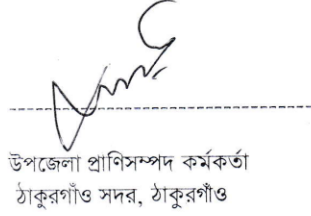 উপজেলা প্রাণিসম্পদ কর্মকর্তা
ঠাকুরগাঁও সদর, ঠাকুরগাঁও